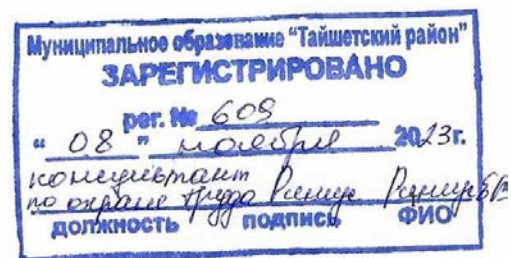 Муниципальное образование "Тайшетский район"
ЗАРЕГИСТРИРОВАНО
рег. № 609
" 08 " ноября 2023г.
консультант
по охране труда
должность подпись ФИО